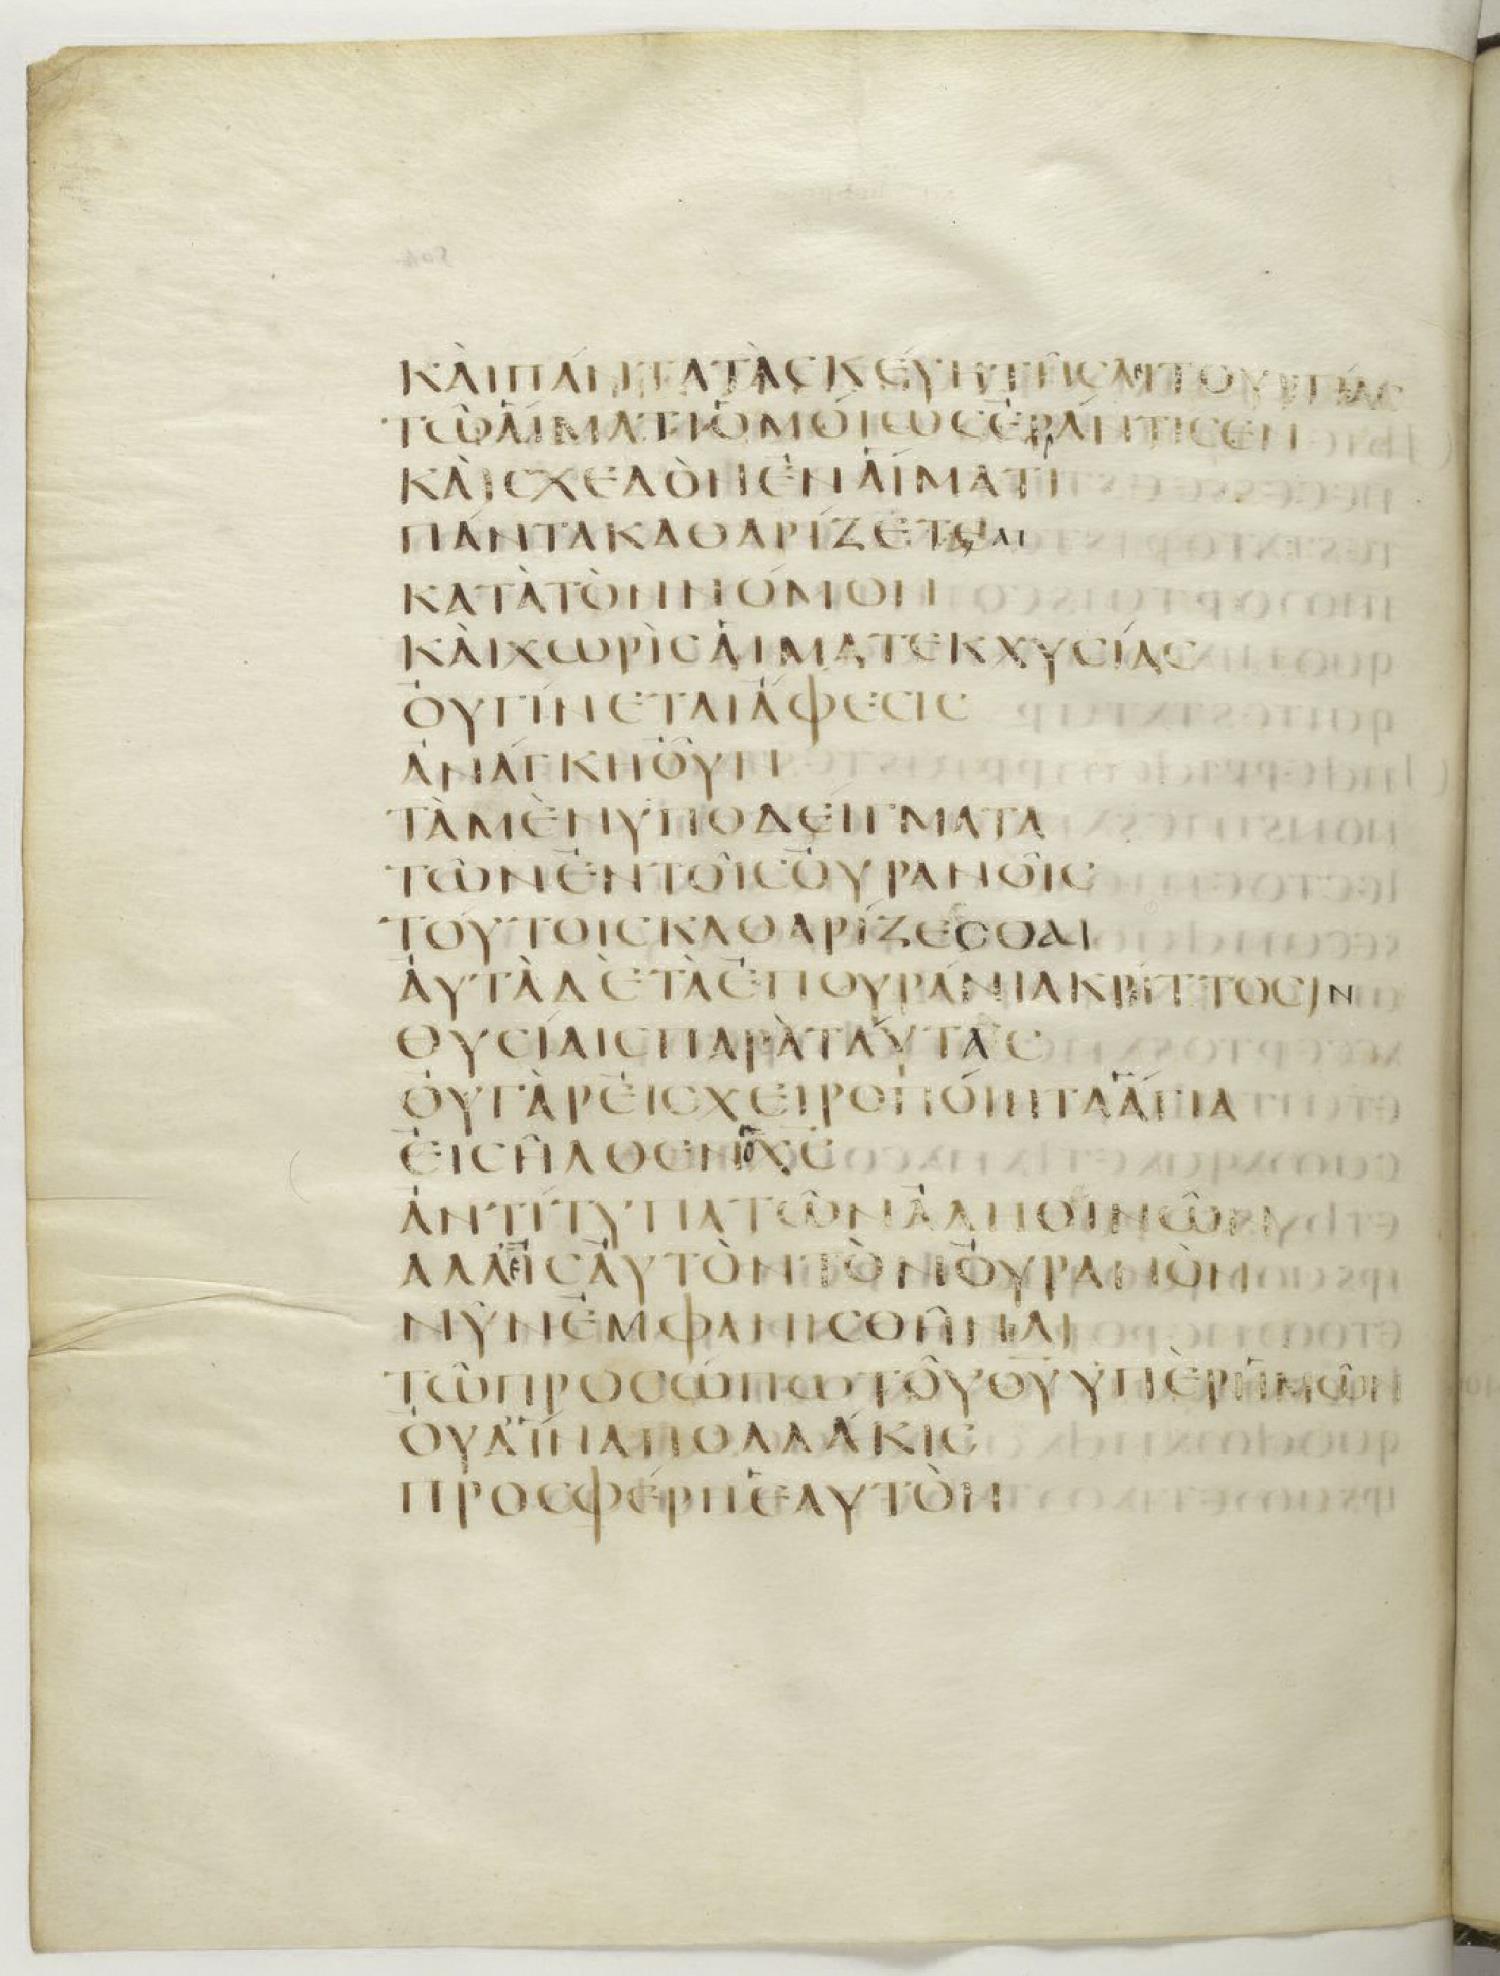 ΚᾺΙΠΆΝΤΑΤᾺϹΚΕΎΗΤΗ͂ϹΛΙΤΟΥΡΓΊΑϹ
ΤΩ͂ΑἽΜΑΤΙὉΜΌΙΩϹἘΡΆΝΤΙϹΕΝ
ΚᾺΙϹΧΕΔῸΝἘΝἉΊΜΑΤΙ
ΠΆΝΤΑΚΑΘΑΡΊΖΕΤΑΙ
ΚΑΤᾺΤῸΝΝΌΜΟΝ
ΚᾺΙΧΩΡῚϹἉΙΜΑΤΕΚΧΥϹΊΑϹ
ὈΥΓΊΝΕΤΑΙἌΦΕϹΙϹ
ἈΝΆΓΚΗὈΥΝ
ΤᾺΜῈΝΥΠΟΔΕΊΓΜΑΤΑ
ΤΩ͂ΝἘΝΤΟΙ͂ϹὈΥΡΑΝΟΙ͂Ϲ
ΤΟΎΤΟΙϹΚΑΘΑΡΊΖΕϹΘΑΙ
ἈΥΤᾺΔῈΤᾺἘΠΟΥΡΆΝΙΑΚΡΊΤΤΟϹΙΝ
ΘΥϹΊΑΙϹΠΑΡᾺΤΑΎΤΑϹ
ὈΥΓᾺΡἘΙϹΧΕΙΡΟΠΌΙΗΤΑἍΓΙΑ
ἘΙϹΗ͂ΛΘΕΝὉΧ̅Ϲ̅
ἈΝΤΊΤΥΠΑΤΩ͂ΝἈΛΗΘΙΝΩ͂Ν
ΑΛΛΕἸϹἈΥΤῸΝΤῸΝὈΥΡΑΝῸΝ
ΝΥ͂ΝἘΜΦΑΝΙϹΘΗ͂ΝΑΙ
ΤΩ͂ΠΡΟϹΩΠΩΤΟΥ͂Θ̅Υ̅ΥΠῈΡἩΜΩ͂Ν
ὈΥΔἽΝΑΠΟΛΛΆΚΙϹ
ΠΡΟϹΦΈΡΗἙΑΥΤῸΝ